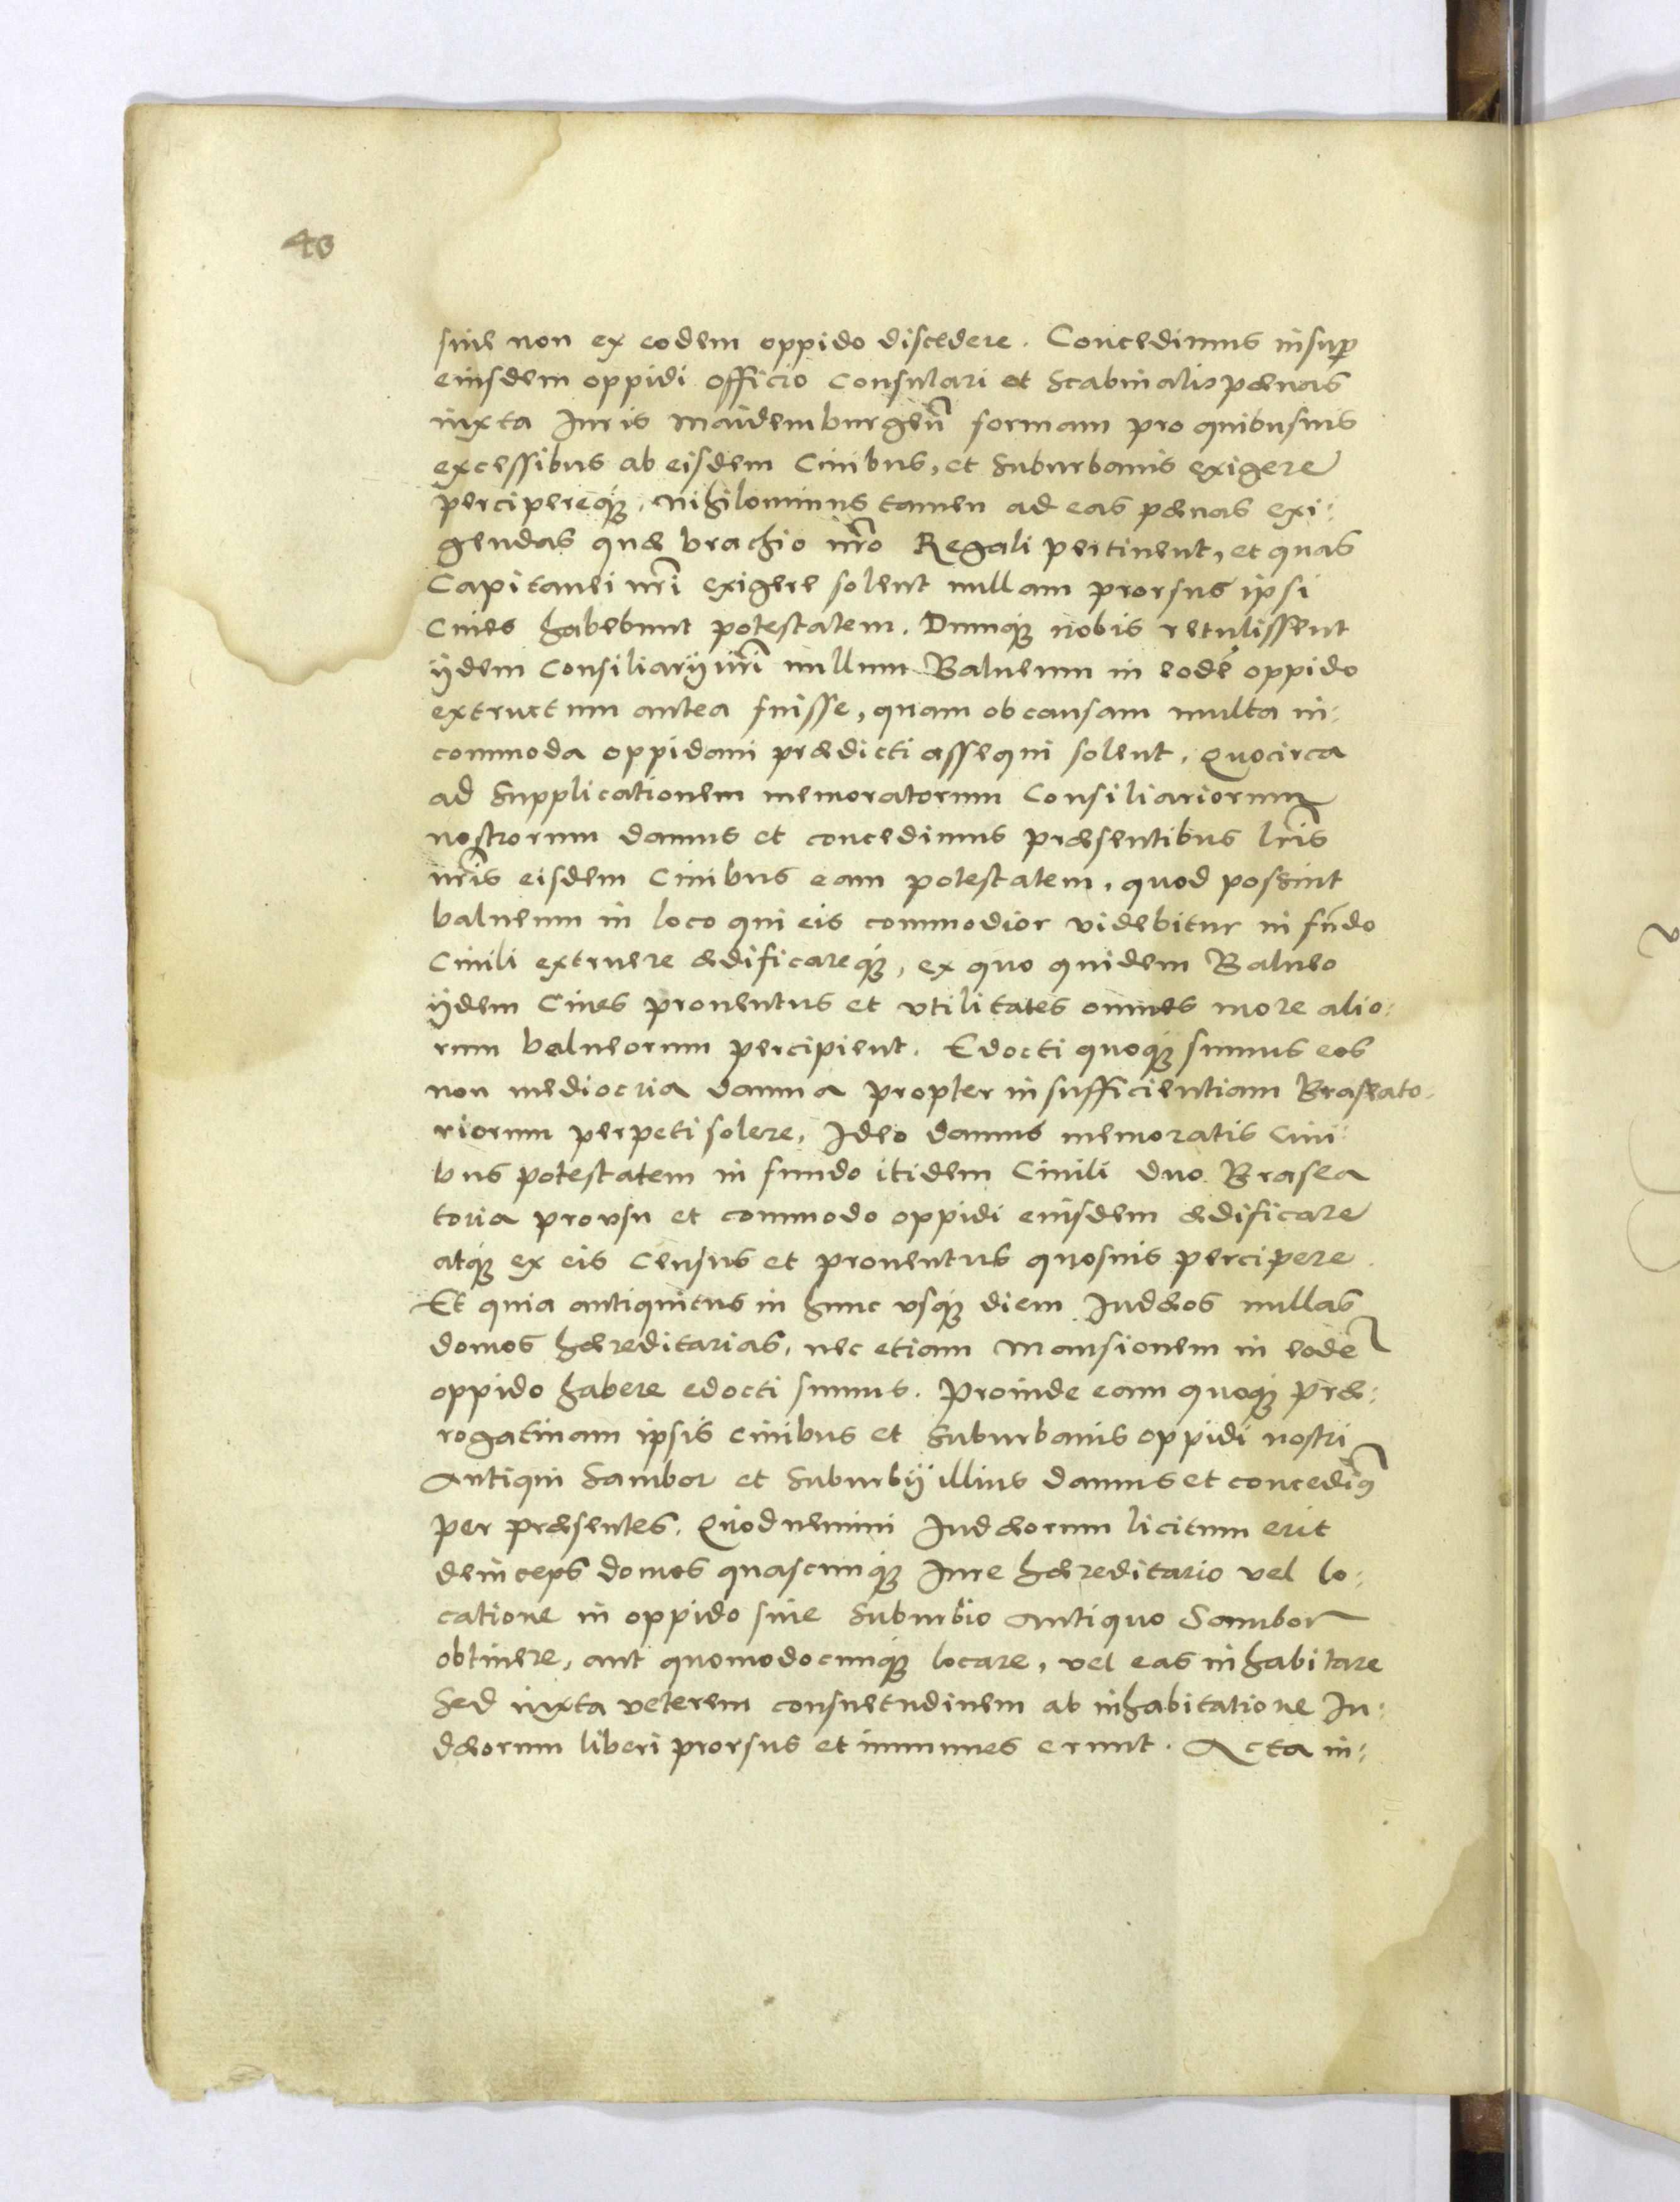 40
siue non ex eodem oppido discedere. Concedimus insup
eiusdem oppidi officio Consulari et Scabinali pænas
iuxta Iuris Maidemburgeñ formam pro quibusuis
excessibus ab eisdem Ciuibus, et Suburbanis exigere
percipereq́ue, nihilominus tamen ad eas pænas exi:
gendas quæ brachio nr̃o Regali pertinent, et quas
Capitanei nr̃i exigere solent nullam prorsus ipsi
Ciues habebunt potestatem. Dumq́ue nobis retulissent
ijdem Consiliarij nr̃i nullum Balneum in eodẽ oppido
extructum antea fuisse, quam ob causam multa in:
commoda oppidani prædicti assequi solent. Quocirca
ad Supplicationem memoratorum Consiliariorum
nostrorum damus et concedimus præsentibus lr̃is
nr̃is eisdem Ciuibus eam potestatem, quod possint
balneum in loco qui eis commodior videbitur in fũdo
Ciuili extruere ædificareq́ue, ex quo quidem Balneo
ijdem Ciues prouentus et vtilitates omnes more alio:
rum balneorum percipient. Edocti quoq́ue sumus eos
non mediocria damna propter insufficientiam Braseato:
riorum perpeti solere, Ideo damus memoratis Ciui:
bus potestatem in fundo itidem Ciuili duo Brasea
toria pro vsu et commodo oppidi eiusdem ædificare
atq́ue ex eis Census et prouentus quosuis percipere.
Et quia antiquitus in hunc vsq́ue diem Iudæos nullas
domos hæreditarias, nec etiam Mansionem in eodẽ
oppido habere edocti sumus. Proinde eam quoq́ue præ:
rogatiuam ipsis ciuibus et Suburbanis oppidi nostri
Antiqui Sambor et Suburbij illius damus et concedim9
per præsentes. Quod nemini Iudæorum licitum erit
deinceps domos quascunq́ue Iure hæreditario vel lo:
catione in oppido siue Suburbio Antiquo Sambor
obtinere, aut quomodocunq́ue locare, vel eas inhabitare
Sed iuxta veterem consuetudinem ab inhabitatione Iu:
dæorum liberi prorsus et immunes erunt. Acta in: